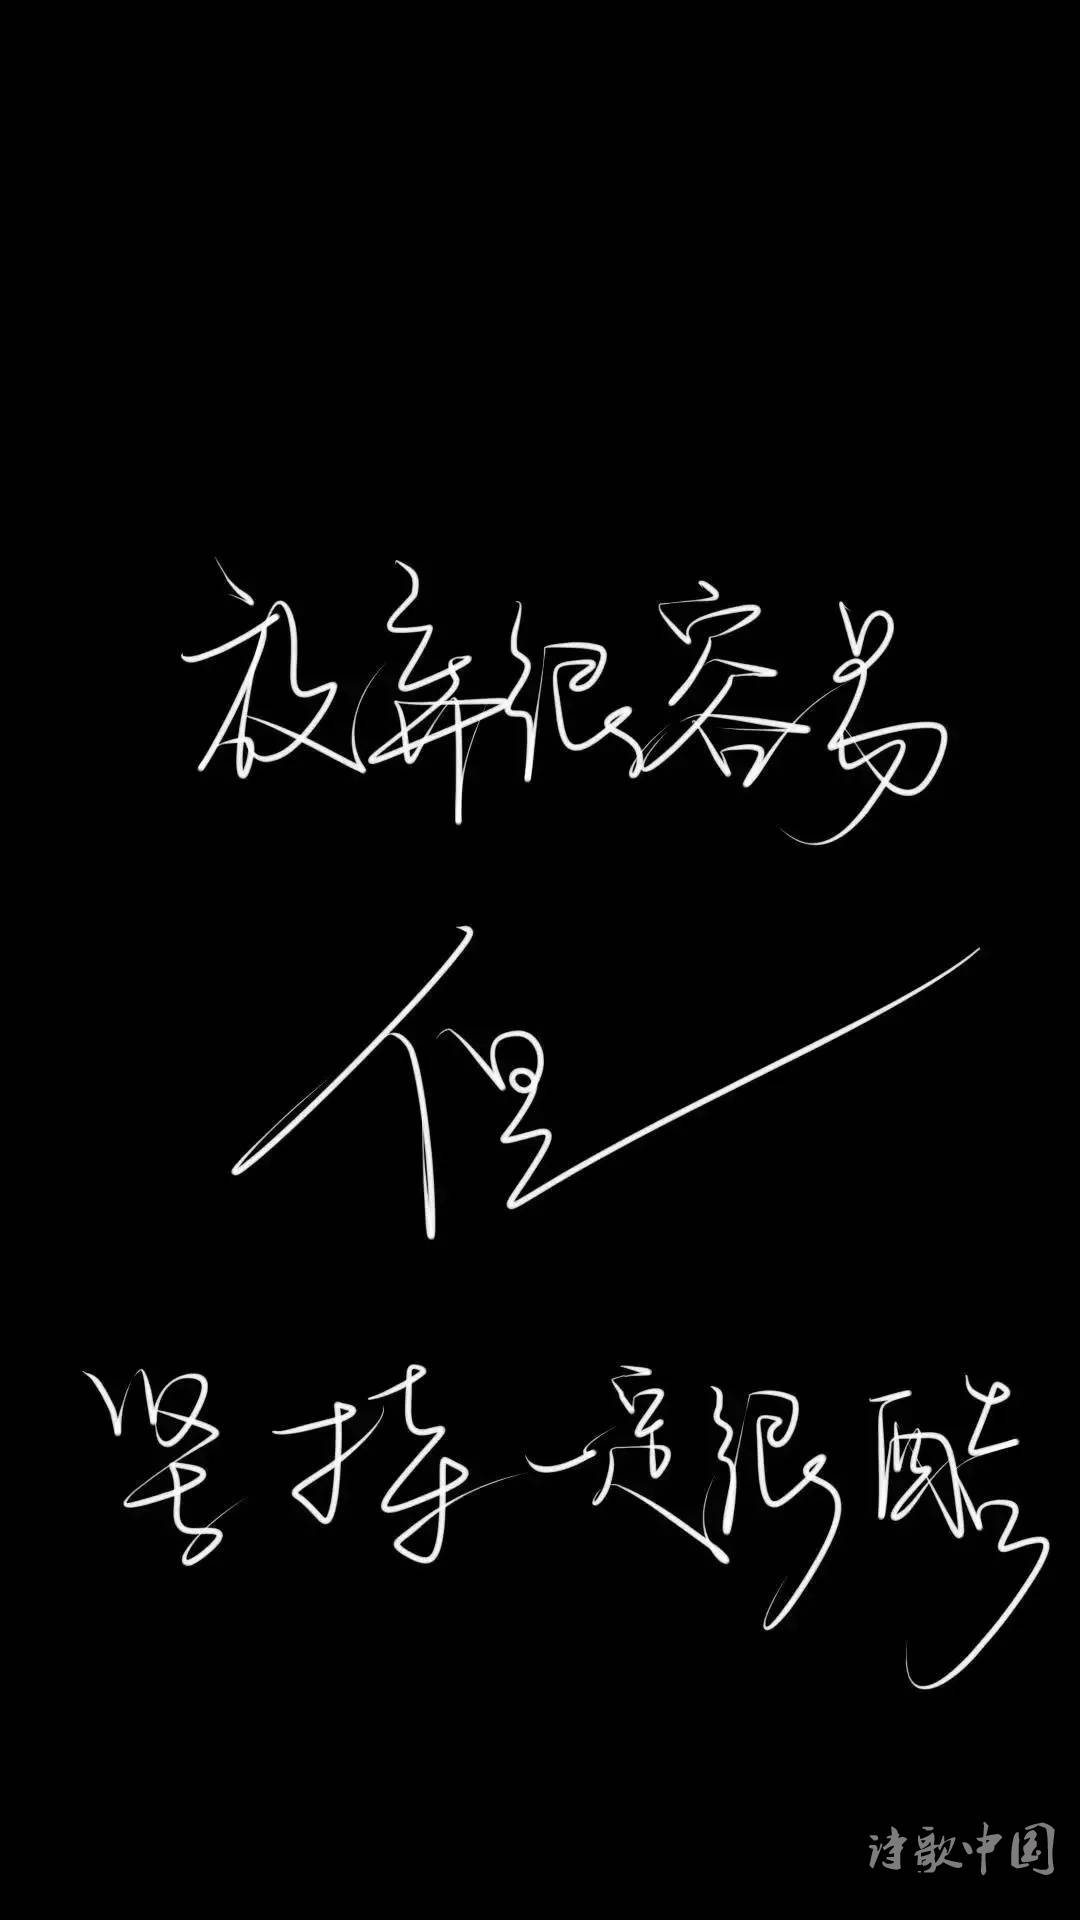 放弃很容易
但
坚持一定很酷
诗歌中国